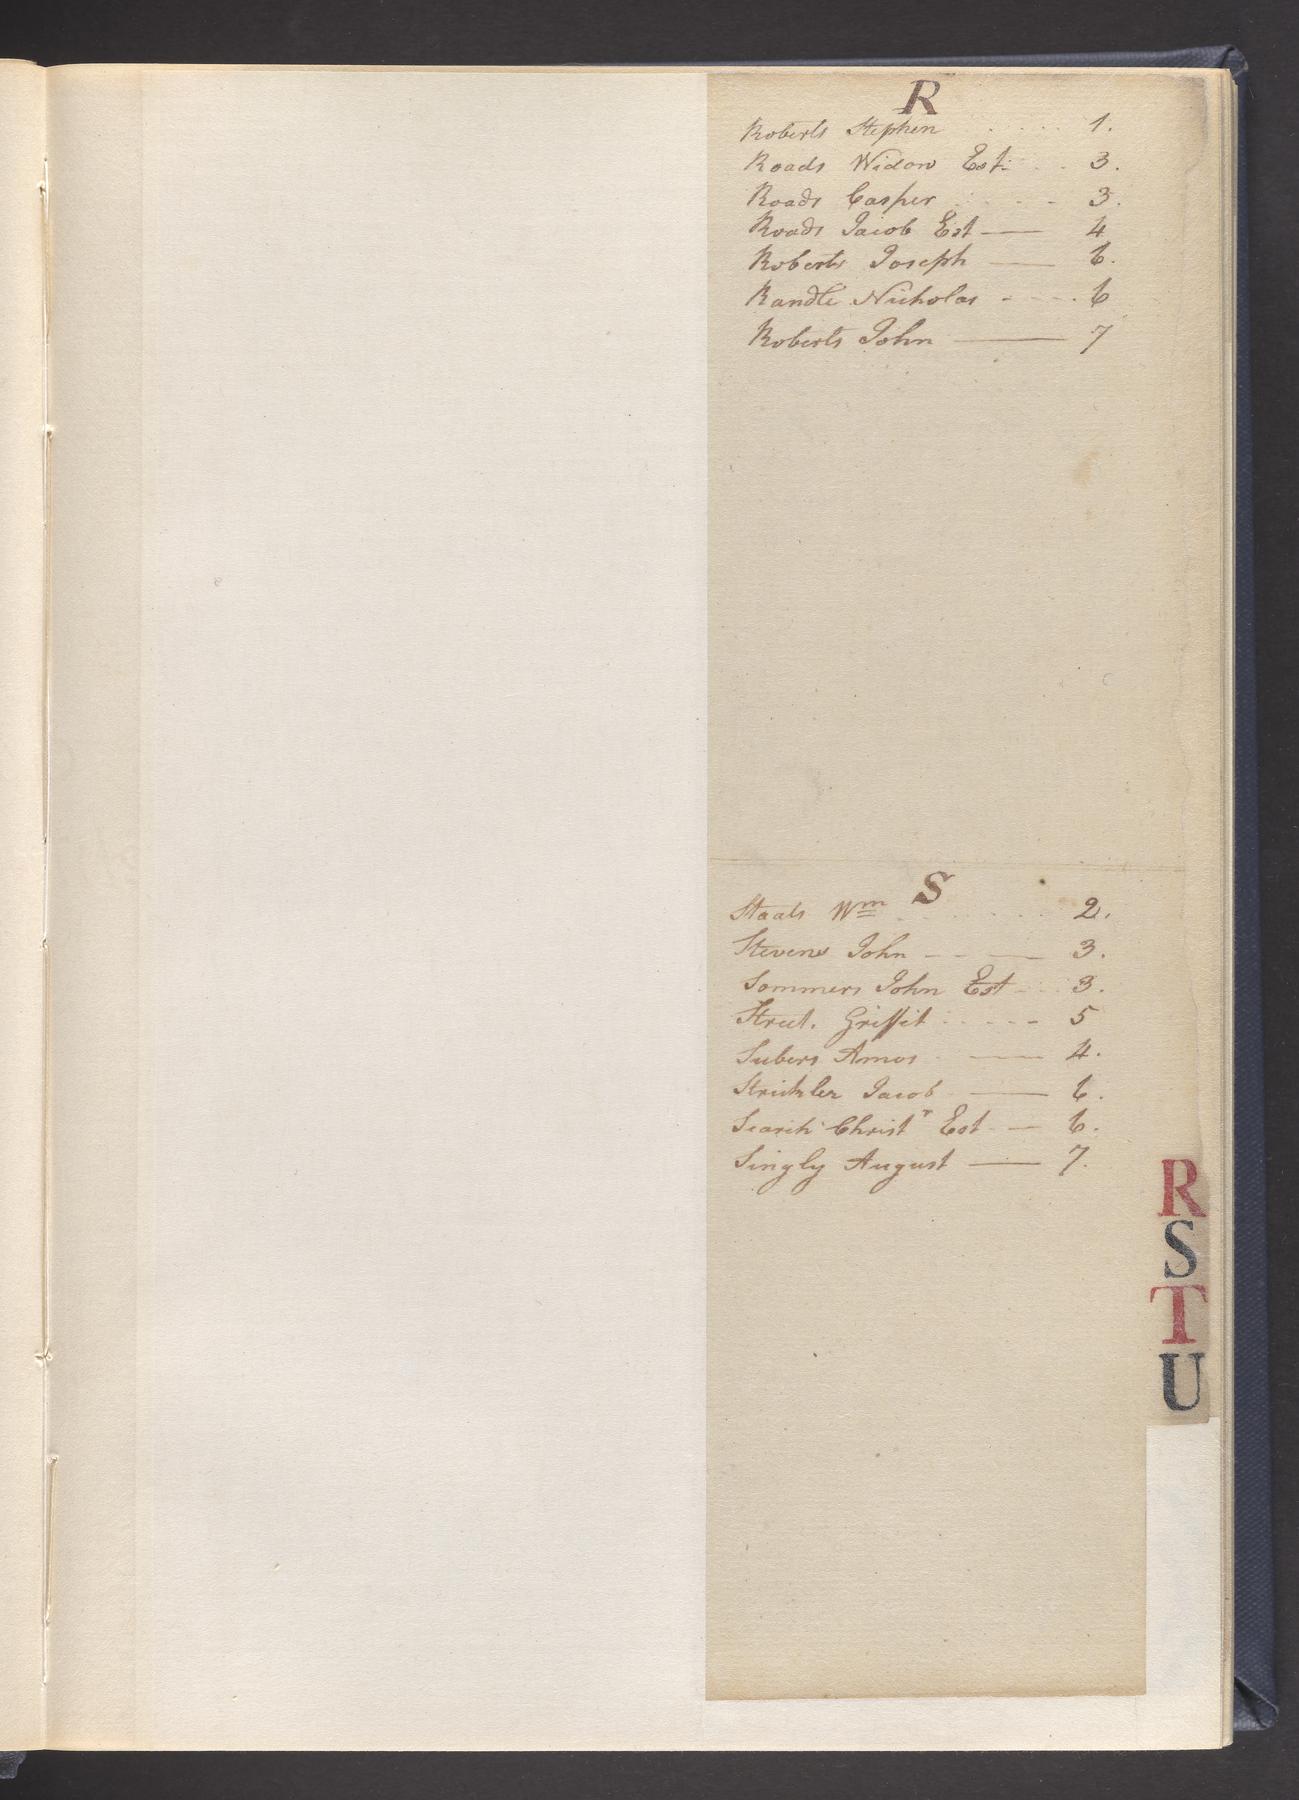 R
Roberts Stephen . . . . . 1.
Roads Widow Est. . . 3.
Roads Casper . . . . 3.
Roads Jacob Est — 4
Roberts Joseph — 6.
Randle Nicholas - - - . 6
Roberts John — 7
S
Staats Wm . . . . . 2.
Stevens John - - — 3.
Sommers John Est . . . 3.
Street. Griffit . . - - - 5
Subers Amos . — 4.
Strickler Jacob — 6.
Search Christr Est - — 6.
Singly August — 7.
R
S
T
U